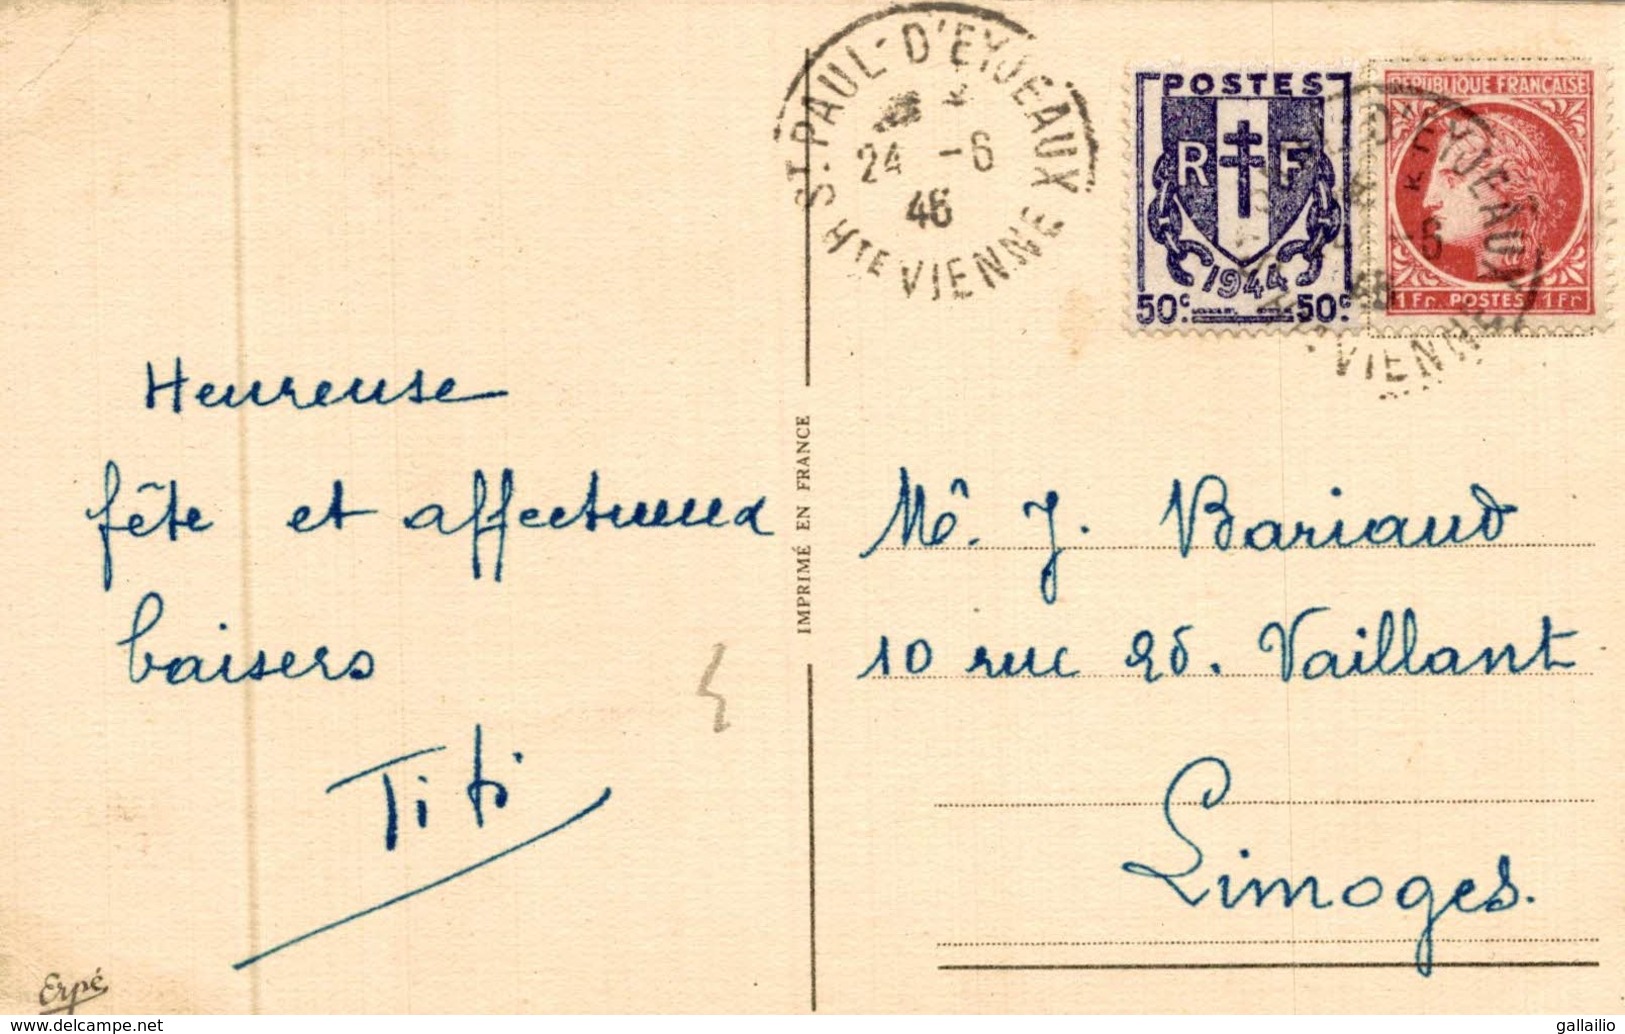 ST PAUL-D'EYJEAUX
24 -6
46
HTE VIENNE
POSTES
R F
1944
50c. 50c.
REPUBLIQUE FRANÇAISE
1Fr. POSTES 1Fr
D'EYJEAUX
-6
46
VIENNE
Heureuse
fête et affectueux
baisers
Titi
IMPRIMÉ EN FRANCE
Mê. J. Bariaud
10 rue Ed. Vaillant
Limoges.
Erpé
www.delcampe.net
gallailio